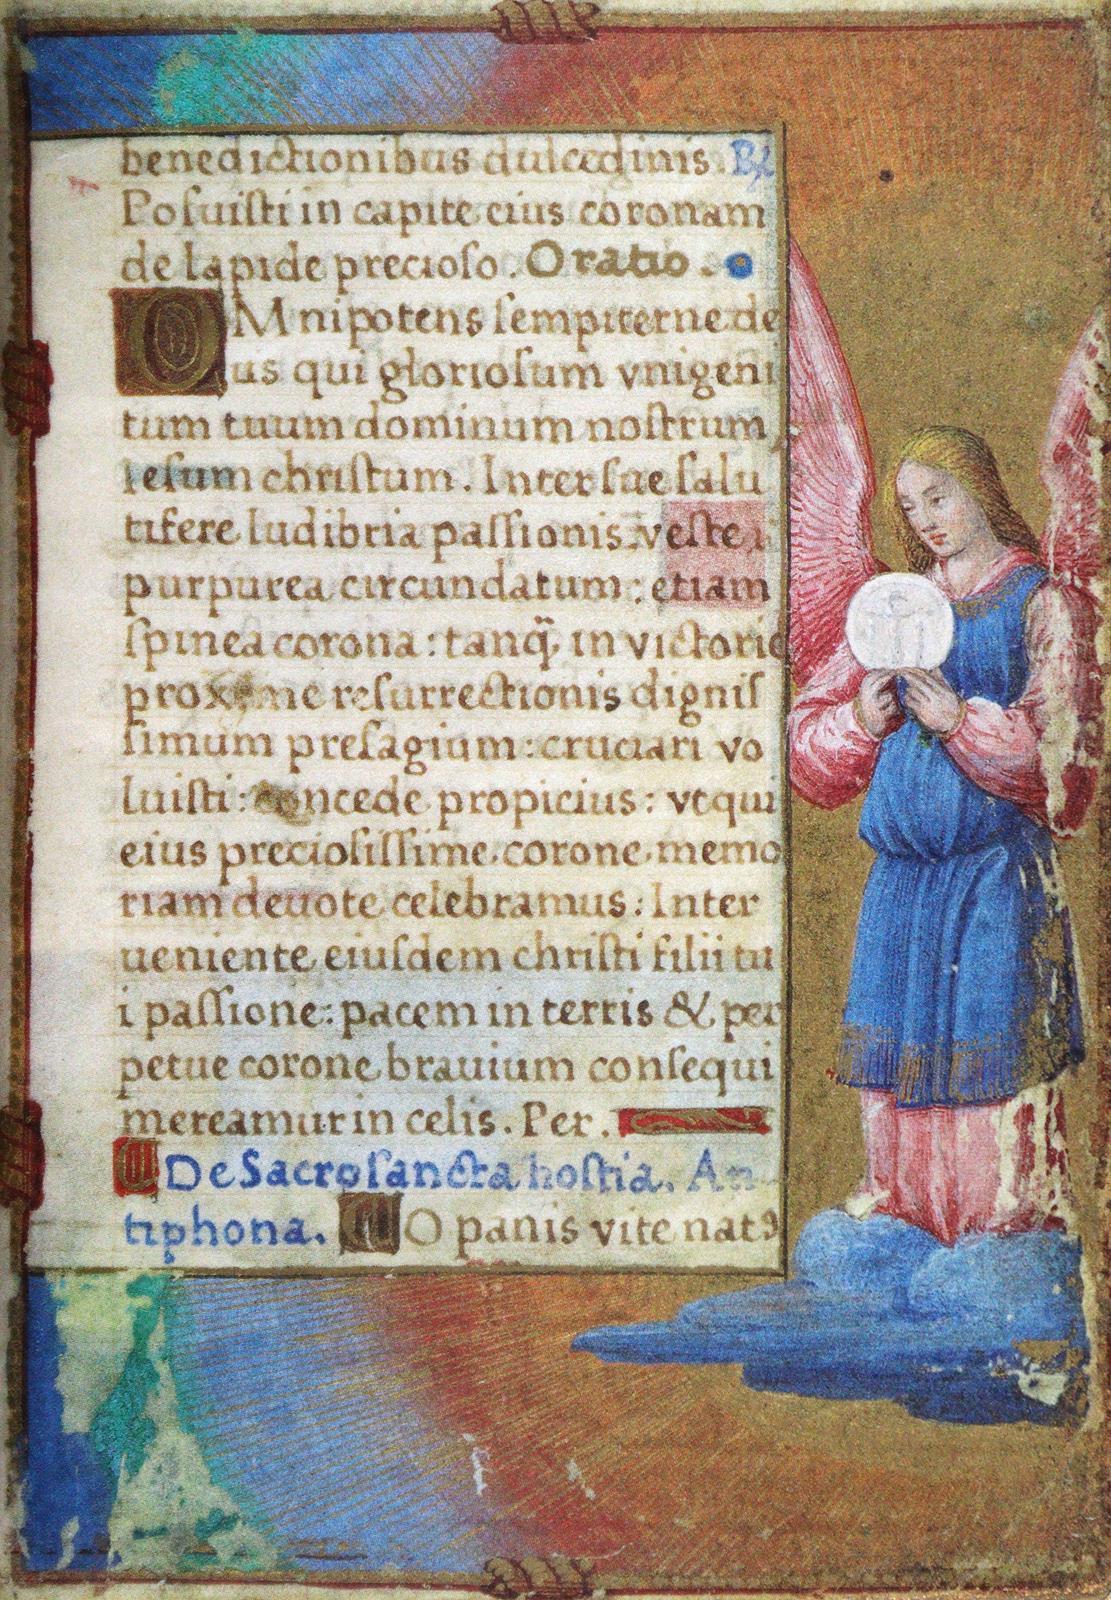 benedictionibus dulcedinis. ℟
Posuisti in capite eius coronam
de lapide precioso. Oratio.
OMnipotens sempiterne de
us qui gloriosum vnigeni
tum tuum dominum nostrum
iesum christum. Inter sue salu
tifere ludibria passionis veste
purpurea circundatum: etiam
spinea corona: tanq̃ in victorie
proxime resurrectionis dignis
simum presagium: cruciari vo
luisti: concede propicius: vt qui
eius preciosissime corone memo
riam deuote celebramus: Inter
ueniente eiusdem christi filii tu
i passione: pacem in terris & per
petue corone brauium consequi
mereamur in celis. Per.
De Sacrosancta hostia. An
tiphona. O panis vite natꝯ